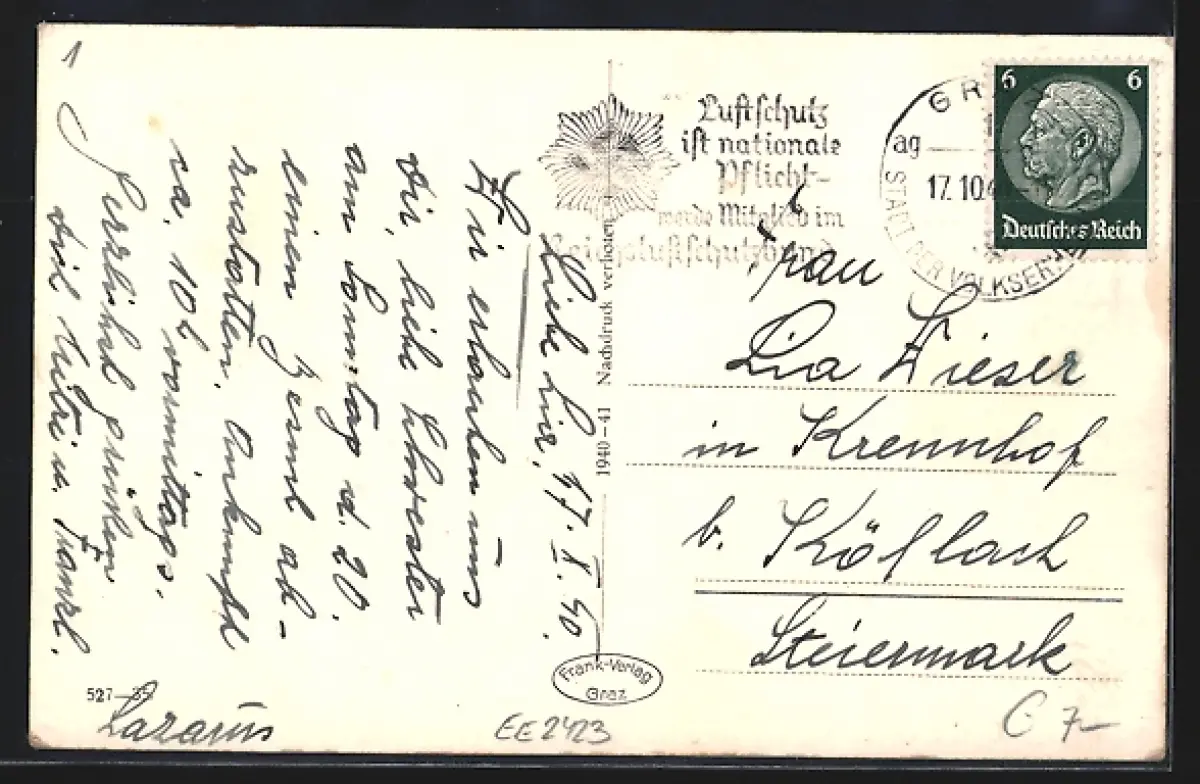 1
Liebe Lia, 17. X. 40.
Wir erlauben uns
dir, liebe Schwester
am Sonntag d. 20.
einen Besuch ab-
zustatten. Ankunft
ca. 10h vormittags.
Herzlichst grüssen
dich Mitzi u. Franzl.
Lazarus
527-39
EE2423
1940-41 Nachdruck verboten
Frank-Verlag
Graz
Luftschutz
ist nationale
Pflicht-
werde Mitglied im
Reichsluftschutzbund
GRAZ
ag
17.10.4
STADT DER VOLKSERHEBUNG
6 6
Deutsches Reich
Frau
Lia Wieser
in Krennhof
b. Köflach
Steiermark
C 7-